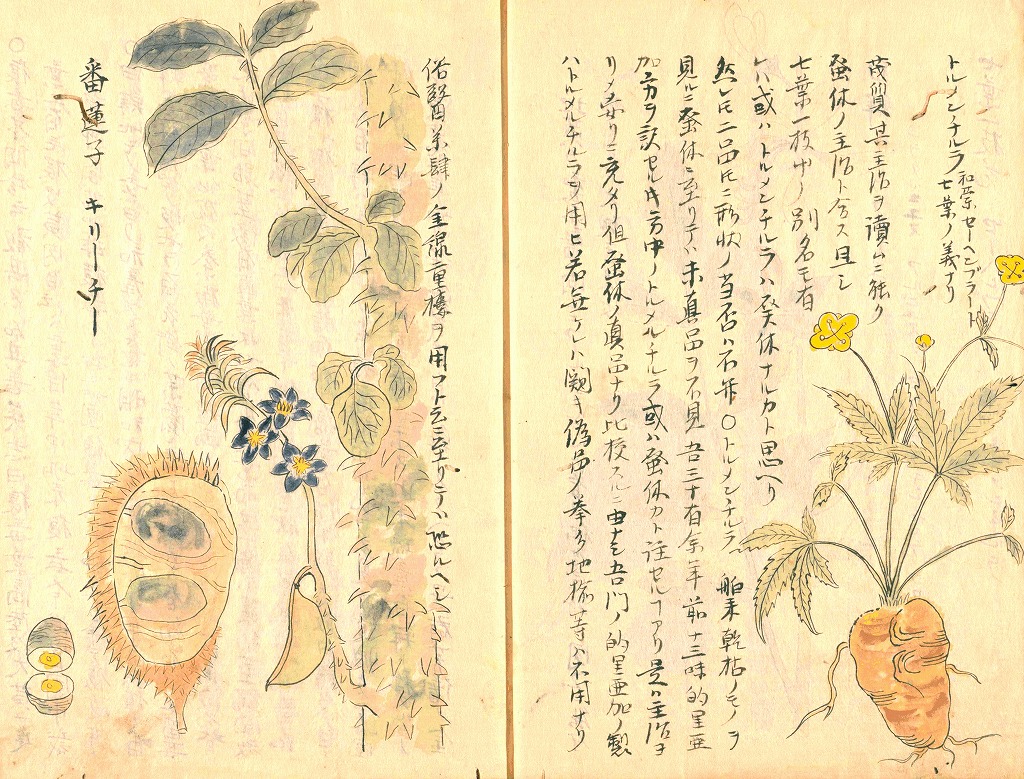 トルメンチルラ 和蘭セーヘンブラート
七葉ノ義ナリ
茂質其主治ヲ讀ムニ能ク
蚤休ノ主治ト合ス且ツ
七葉一枝 ノ別名モ有
レハ或ハトルメンチルラハ蚤休ナルカト思ヘリ
然レ圧二品 ニ形状ノ当否ハ不 〇トルメンチルラ 舶来乾枯ノモノヲ
見ルニ蚤休ニ至リテハ未真品ヲ不見吾三十有余年前十三味的里亜
加ノ方ヲ訳セルキ方中ノトルメンチルラ或ハ蚤休カト註セルアリ是ハ主治ヲ
リノ ニ充タリ但蚤休ノ真品ナリ比校スルニ由ナシ吾門ノ的里亜加ノ製
ハトルメンチルラヲ用ヒ若無ケレハ闕キ偽品ノ拳参地楡等ハ不用ナリ
俗醫薬肆ノ金線重楼ヲ用フト云ニ至リテハ恐ルヘシ
番蓮子 キリーチー